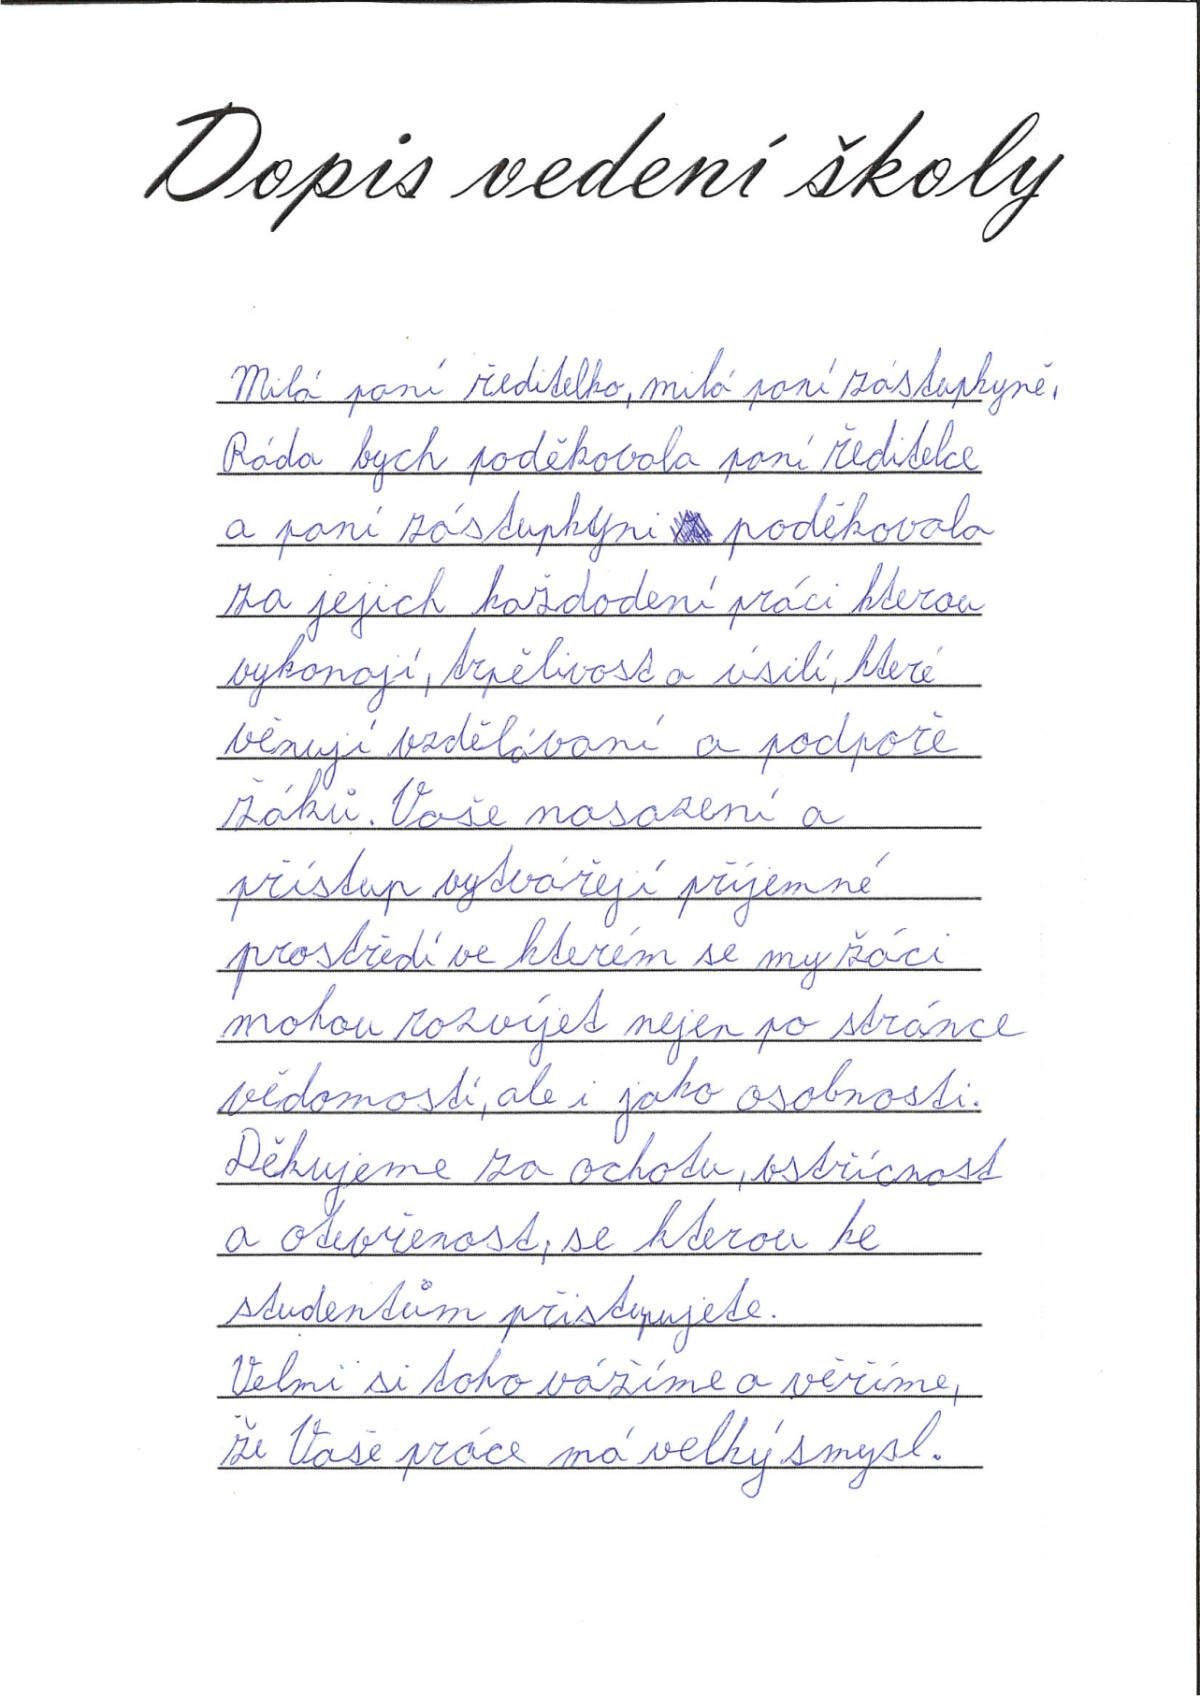 Dopis vedení školy
Milá paní ředitelko, milá paní zástupkyně,
Ráda bych poděkovala paní ředitelce
a paní zástupkyni poděkovala
za jejich každodení práci kterou
vykonají, trpělivost a úsilí, které
věnují vzdělávaní a podpoře
žáků. Vaše nasazení a
přístup vytvářejí příjemné
prostředí ve kterém se my žáci
mohou rozvíjet nejen po stránce
vědomostí, ale i jako osobnosti.
Děkujeme za ochotu, vstřícnost
a otevřenost, se kterou ke
studentům přistupujete.
Velmi si toho vážíme a věříme,
že Vaše práce má velký smysl.